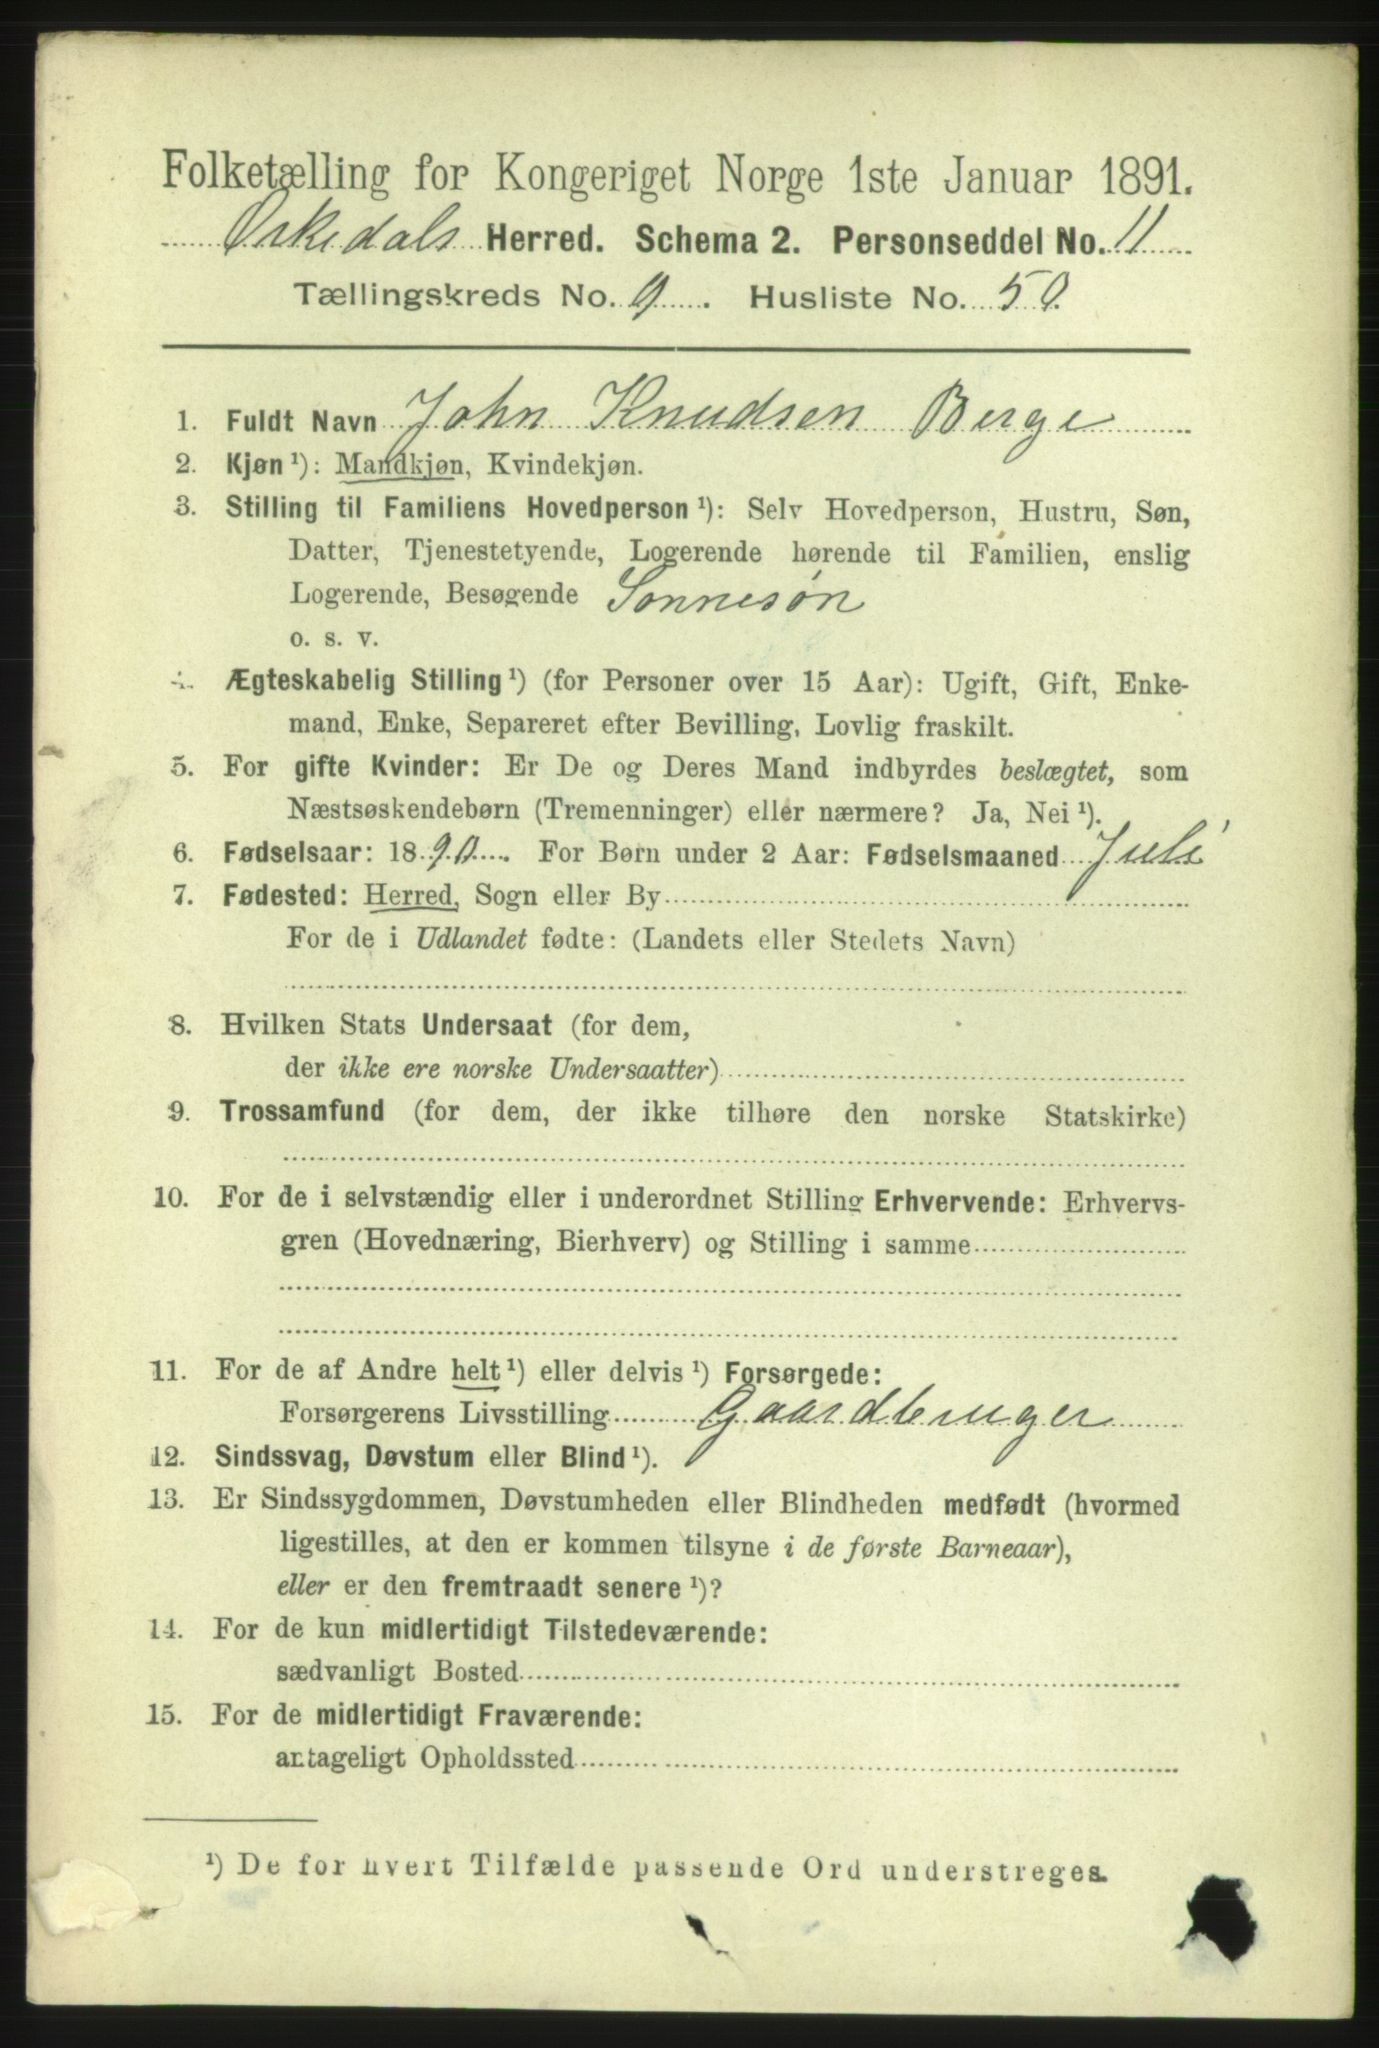 Folketælling for Kongeriget Norge 1ste Januar 1891.
Orkedals Herred. Schema 2. Personseddel No. 11
Tællingskreds No. 9. Husliste No. 50
1. Fuldt Navn John Knudsen Berge
2. Kjøn ¹): Mandkjøn, Kvindekjøn.
3. Stilling til Familiens Hovedperson ¹): Selv Hovedperson, Hustru, Søn,
Datter, Tjenestetyende, Logerende hørende til Familien, enslig
Logerende, Besøgende Sønnesøn
o. s. v.
4. Ægteskabelig Stilling ¹) (for Personer over 15 Aar): Ugift, Gift, Enke-
mand, Enke, Separeret efter Bevilling, Lovlig fraskilt.
5. For gifte Kvinder: Er De og Deres Mand indbyrdes beslægtet, som
Næstsøskendebørn (Tremenninger) eller nærmere? Ja, Nei ¹).
6. Fødselsaar: 1890. For Børn under 2 Aar: Fødselsmaaned Juli
7. Fødested: Herred, Sogn eller By
For de i Udlandet fødte: (Landets eller Stedets Navn)
8. Hvilken Stats Undersaat (for dem,
der ikke ere norske Undersaatter)
9. Trossamfund (for dem, der ikke tilhøre den norske Statskirke)
10. For de i selvstændig eller i underordnet Stilling Erhvervende: Erhvervs-
gren (Hovednæring, Bierhverv) og Stilling i samme
11. For de af Andre helt ¹) eller delvis ¹) Forsørgede:
Forsørgerens Livsstilling Gaardbruger
12. Sindssvag, Døvstum eller Blind ¹).
13. Er Sindssygdommen, Døvstumheden eller Blindheden medfødt (hvormed
ligestilles, at den er kommen tilsyne i de første Barneaar),
eller er den fremtraadt senere ¹)?
14. For de kun midlertidigt Tilstedeværende:
sædvanligt Bosted
15. For de midlertidigt Fraværende:
antageligt Opholdssted
¹) De for hvert Tilfælde passende Ord understreges.